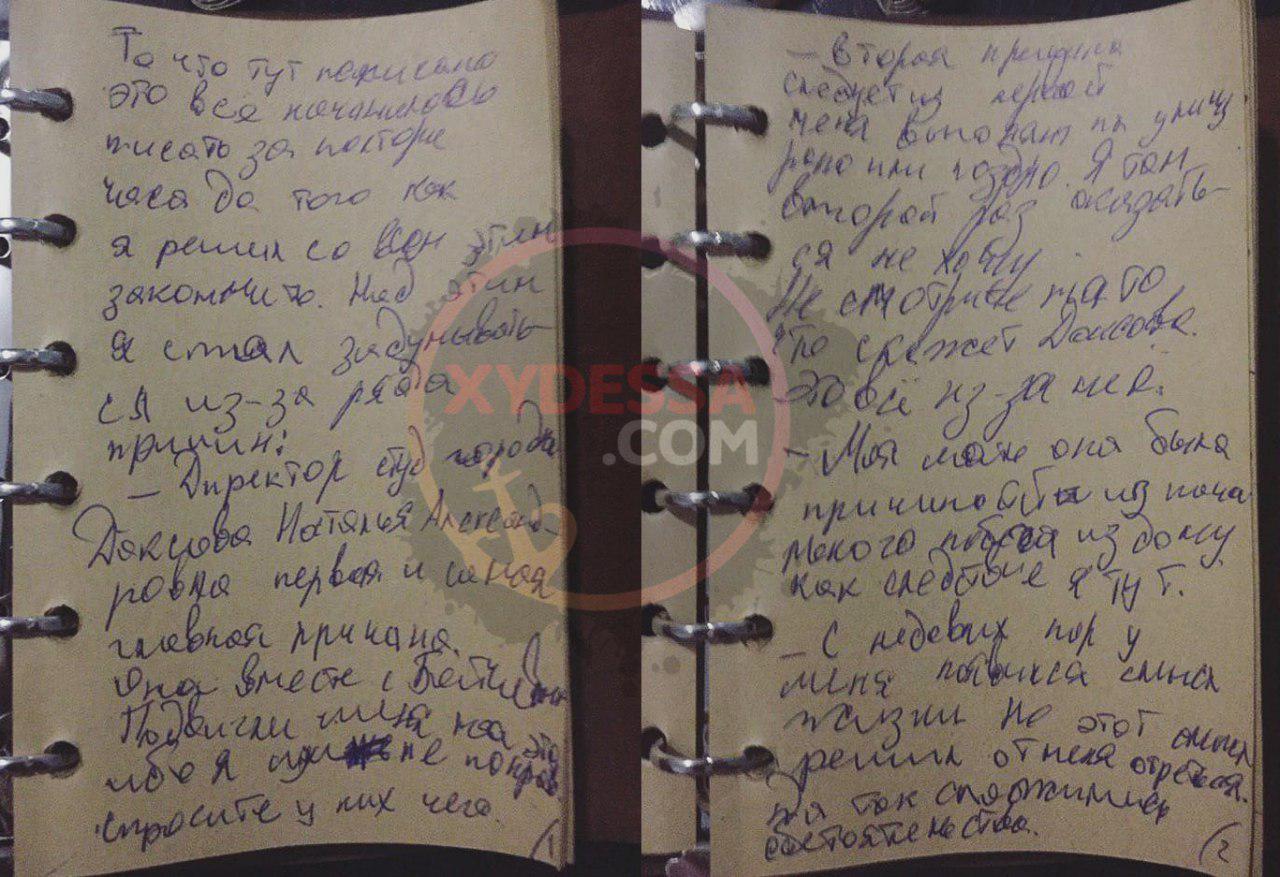 То что тут написано
это всё начиналось
писать за полтора
часа до того как
я решил со всем этим
закончить. Над этим
я стал задумывать-
ся из-за ряда
причин:
– Директор студ города
Наталья Александ-
ровна первая и самая
главная причина.
Она вместе с
Подвигли меня на это
ибо я им не понрав
спросите у них чего.
(1
– Вторая причина
следует из первой
меня выгонят на улицу
рано или поздно. Я там
второй раз оказать-
ся не хочу.
Не смотрите на то
что скажет
Это всё из-за неё.
– Моя мать она была
причиной из нача
моего побега из дому
как следствие я тут.
– С недавних пор у
меня появился смысл
жизни но этот смысл
решил от меня отречься.
так сложились
обстоятельства.
(2
XYDESSA
.COM